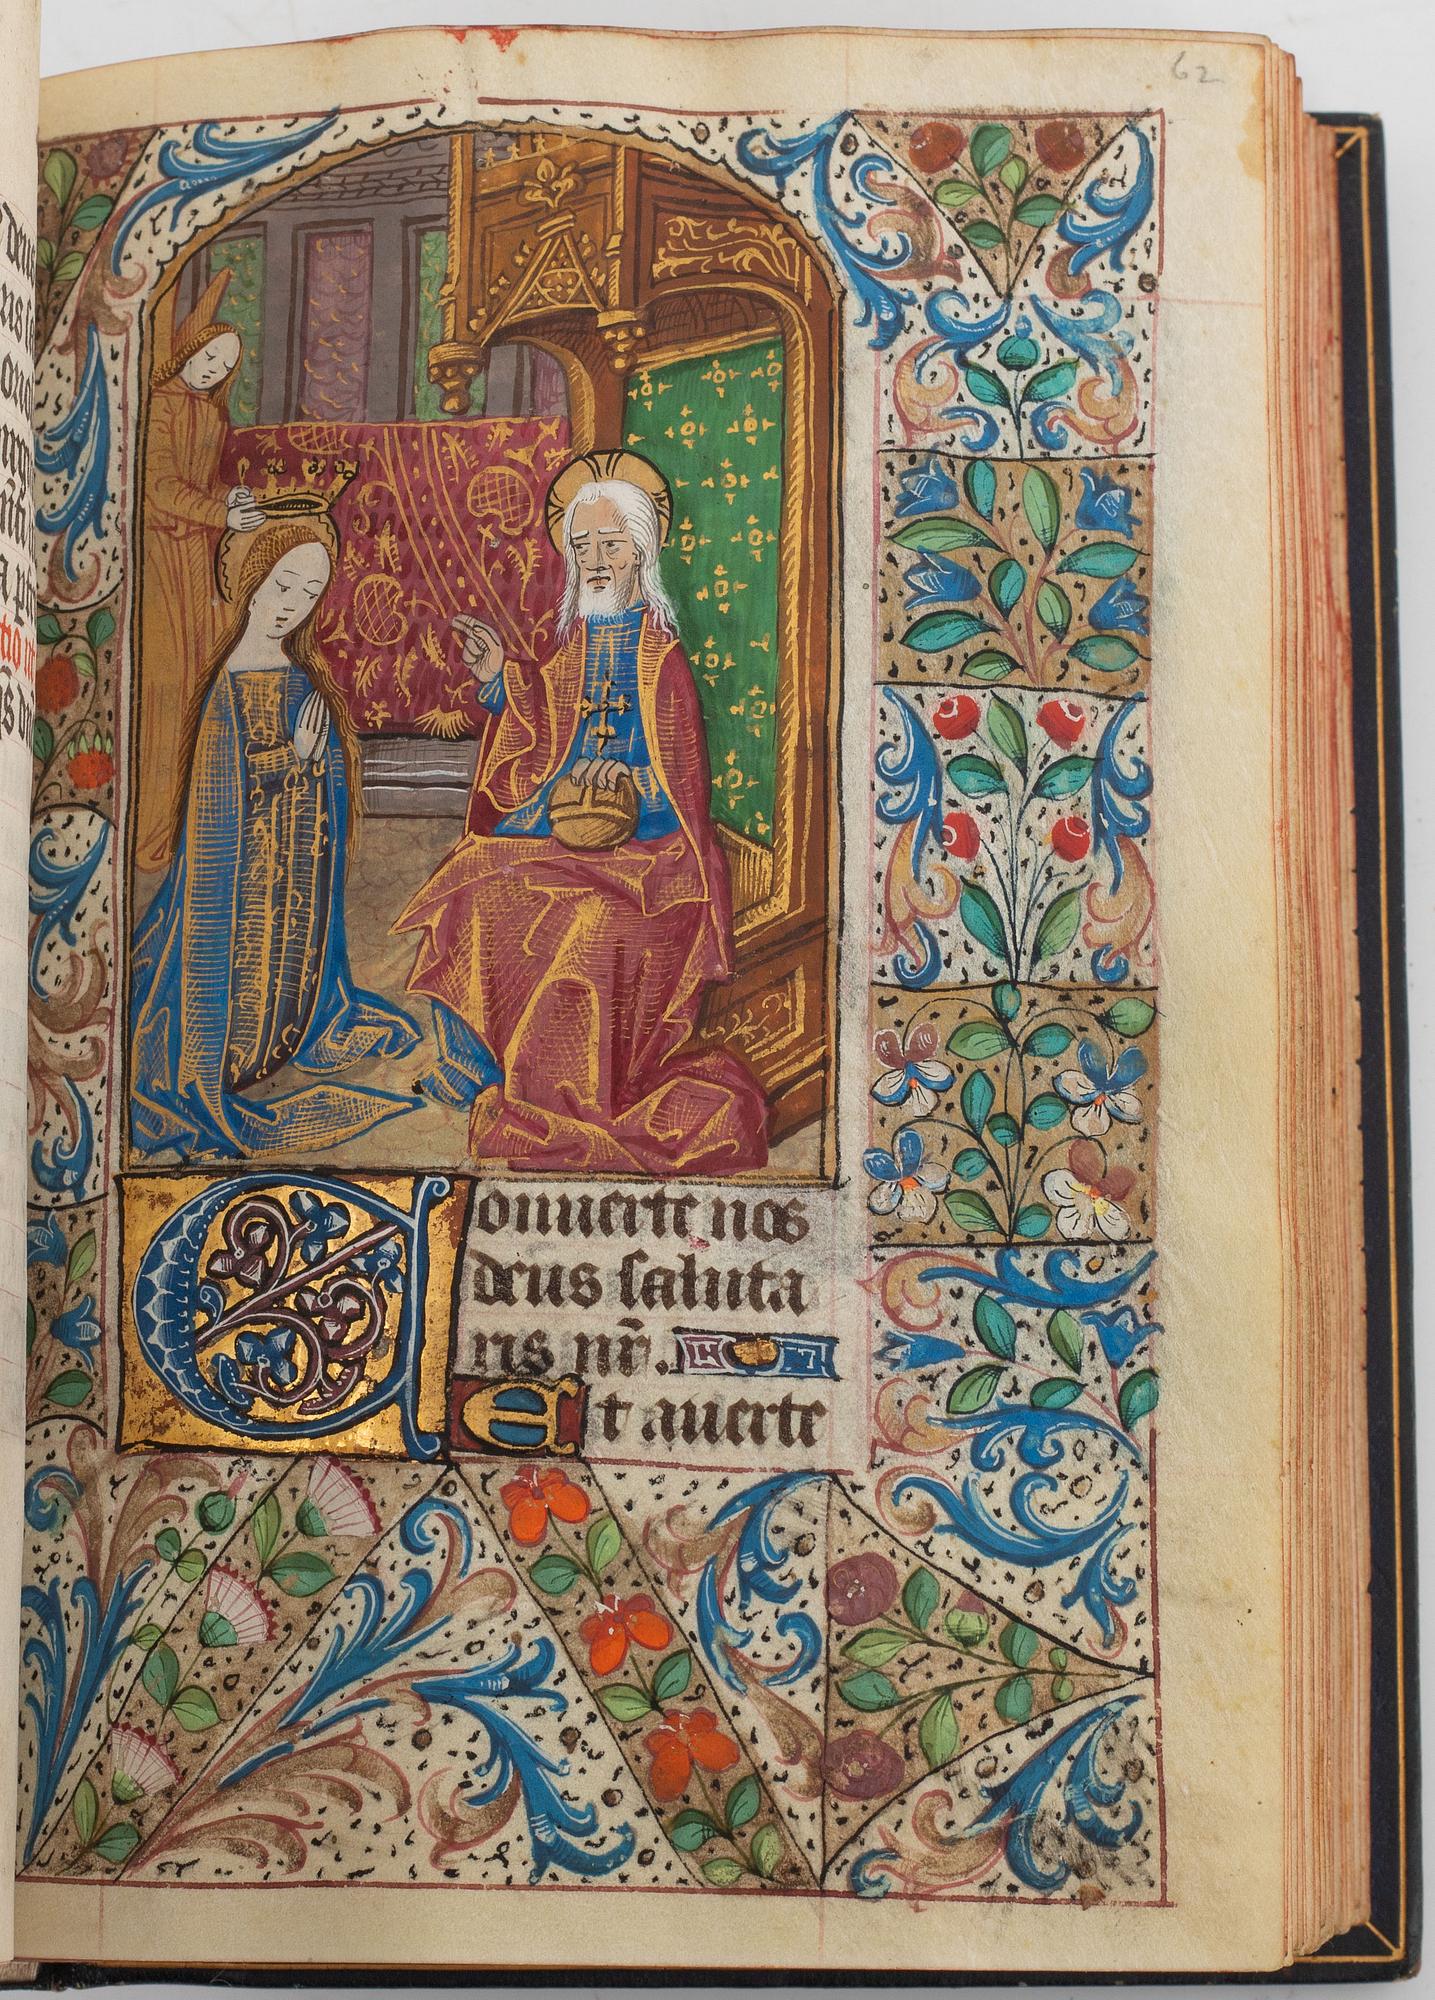 62
Conuerte nos
deus saluta
ris nr̄.
Et auerte